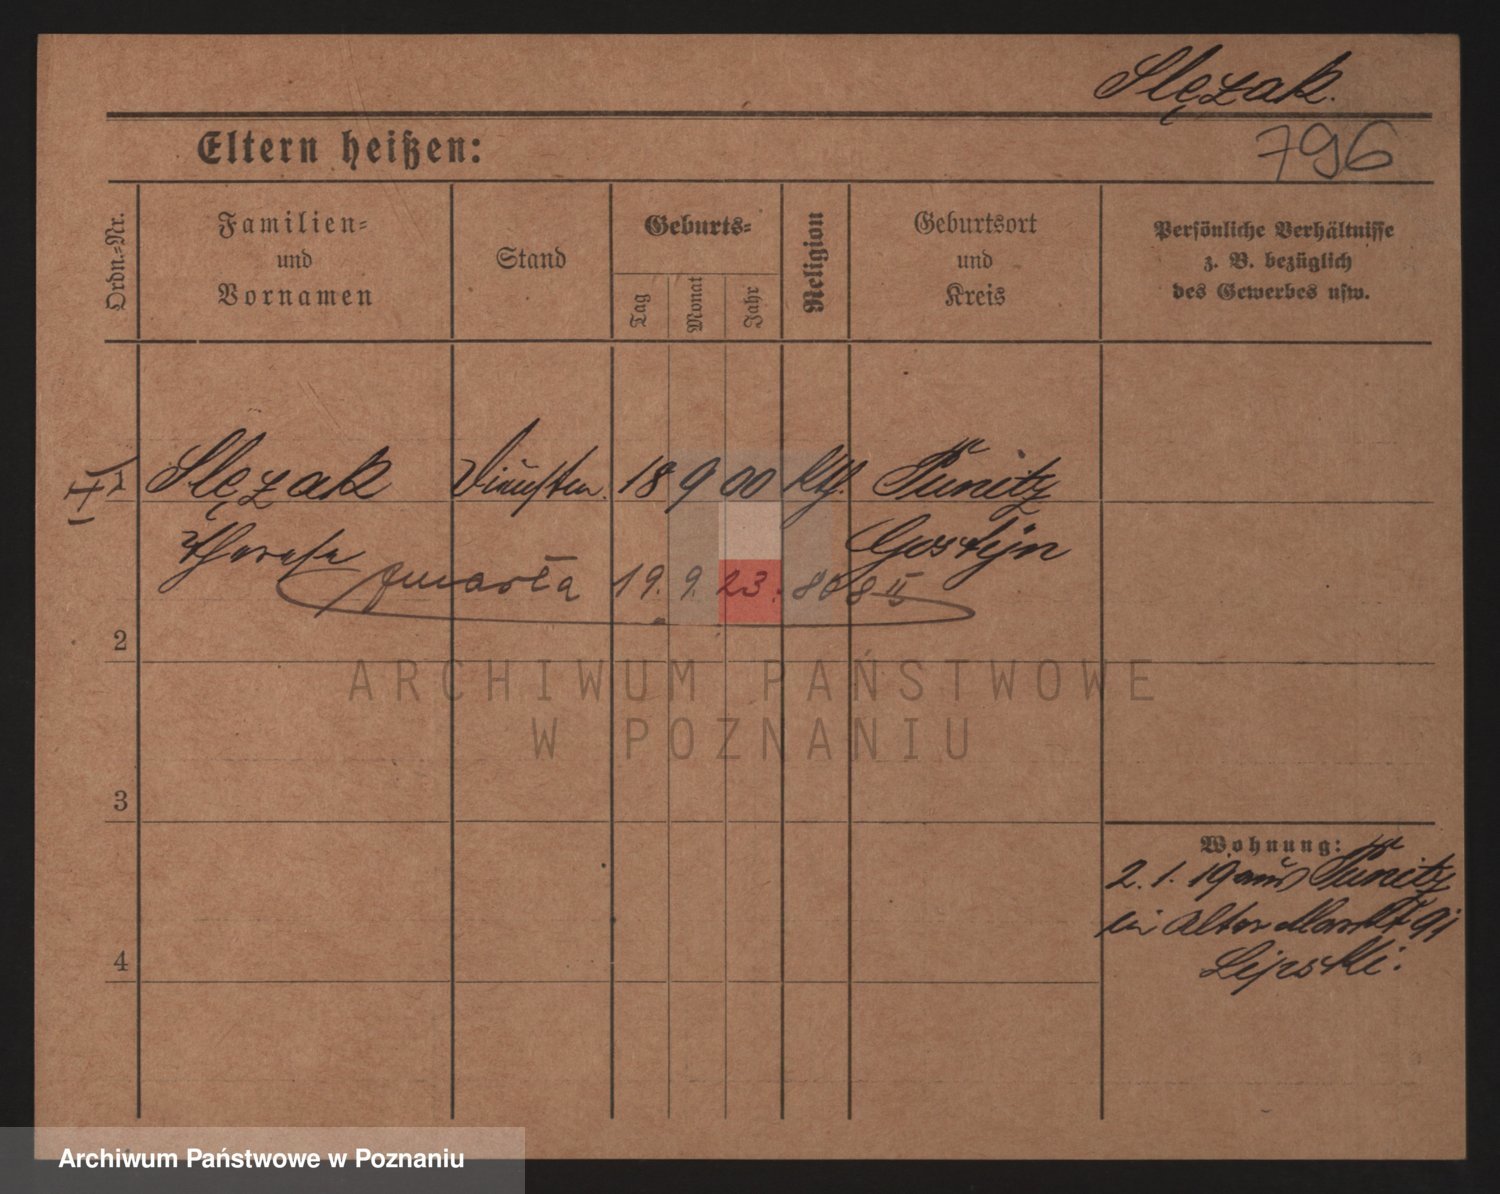 Ślęzak.
796
Eltern heißen:
Ordn.-Nr.
Familien-
und
Vornamen
Stand
Geburts-
Tag
Monat
Jahr
Religion
Geburtsort
und
Kreis
Persönliche Verhältnisse
z. B. bezüglich
des Gewerbes usw.
1 Ślęzak 18 9 00 kth. Punitz
Gostyn
Therese
zmarła 19. 9. 23.
2
3
4
Wohnung:
2. 1. 19 aus Punitz
Alter Markt 91
Lipski.
ARCHIWUM PAŃSTWOWE
W POZNANIU
Archiwum Państwowe w Poznaniu